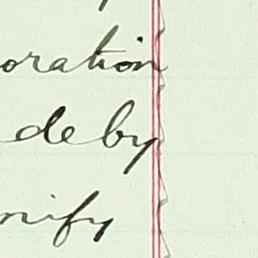 oration
de by
nify